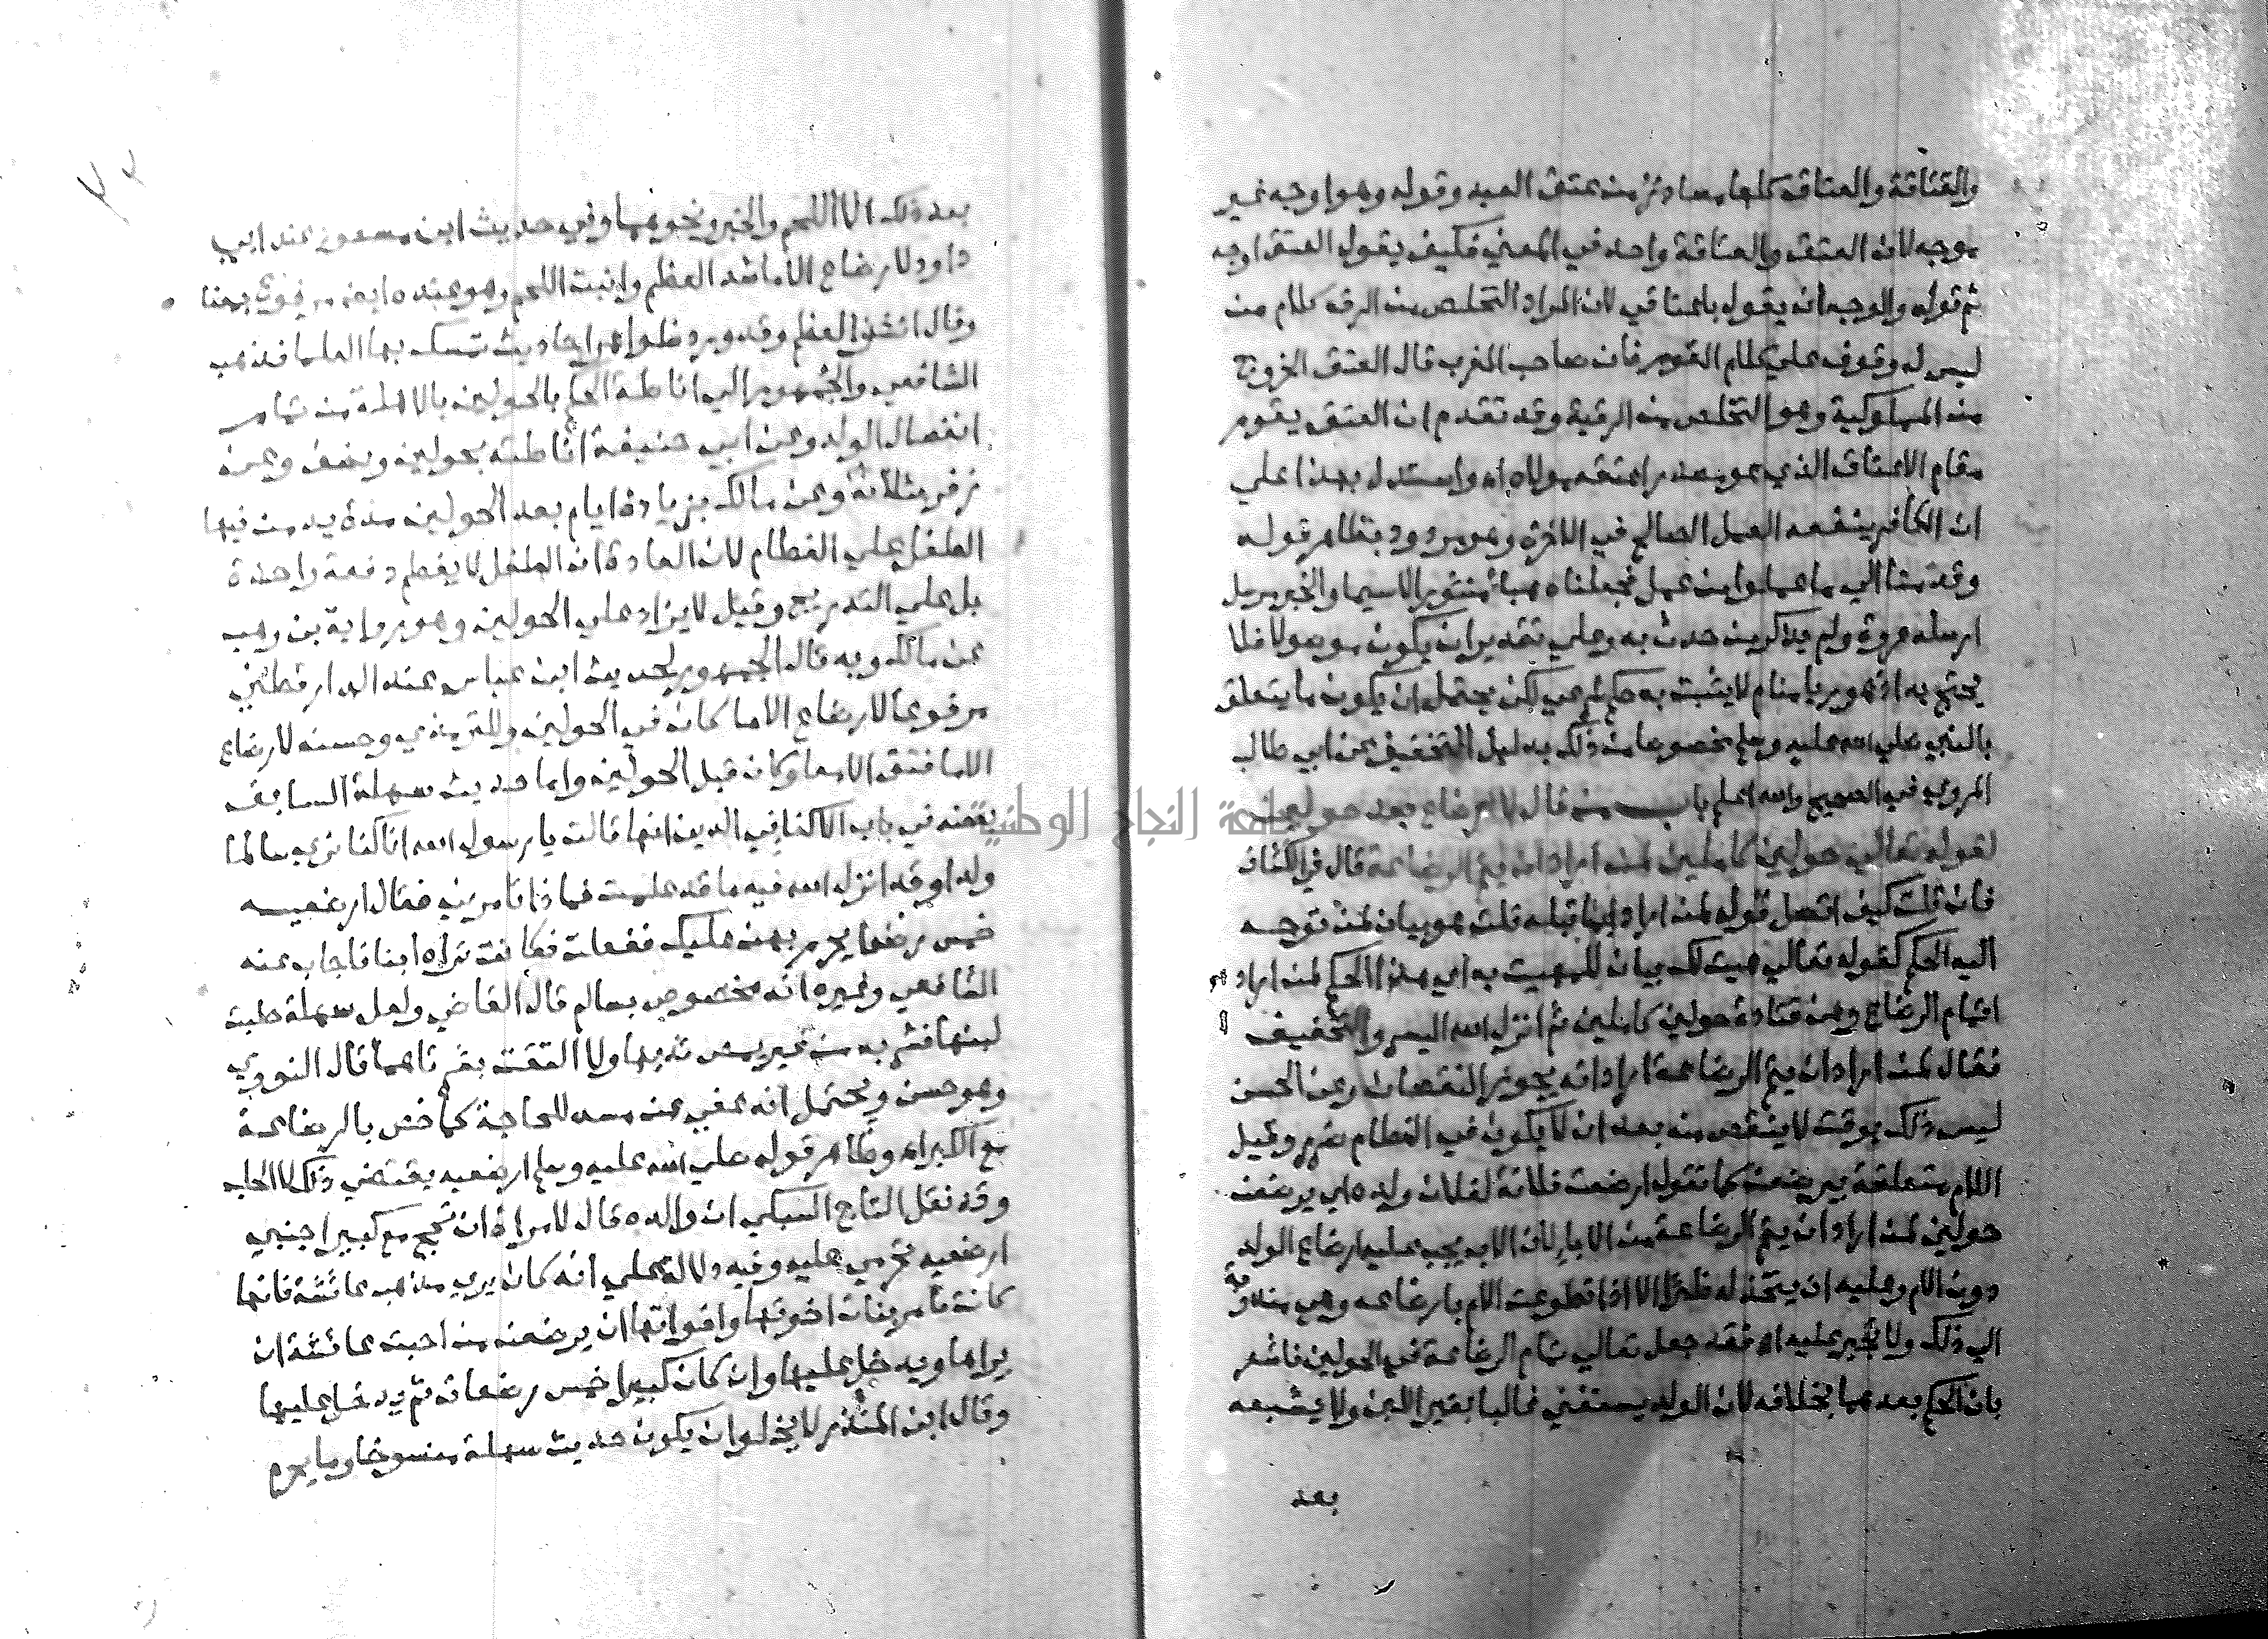 والقتاقة والعتاقه كلها مصادر من عتق العبد وقوله وهو اوجه غير
موجه لان العتق والعتاقة واحد في المعني فكيف يقول العتق اوجه
ثم قوله والوجه ان يقول باعتاقي لان المراد التخلص من الرق كلام من
ليس له وقوف علي كلام القوم فان صاحب المغرب قال العتق الخروج
من المملوكية وهو التخلص من الرقية وقد تقدم ان العتق يقوم
مقام الاعتاق الذي هو مصدر اعتقه مولاه اه واستدل بهذا علي
ان الكافر ينفعه العمل الصالح في الاخرة وهو مردود بظاهر قوله
وقدمنا الي ما عملوا من عمل فجعلناه هباء منثورا لاسيما والخبر مرسل
ارسله عروة ولم يذكر من حدث به وعلي تقدير ان يكون موصولا فلا
يحتج به اذ هو رؤيا منام لا يثبت به حكم شرعي لكن يحتمل ان يكون ما يتعلق
بالنبي صلي الله عليه وسلم مخصوصا من ذلك بدليل التخفيف عن ابي طالب
المروي في الصحيح والله اعلم باب من قال لا رضاع بعد حولين
لقوله تعالي حولين كاملين لمن اراد ان يتم الرضاعة قال في الكشاف
فان قلت كيف اتصل قوله لمن اراد بما قبله قلت هو بيان لمن توجه
اليه الحكم كقوله تعالي هيت لك بيان للمهيت به اي هذا الحكم لمن اراد
اتمام الرضاع وعن قتادة حولين كاملين ثم انزل الله اليسر والتخفيف
فقال لمن اراد ان يتم الرضاعة اراد انه يجوز النقصان وعن الحسن
ليس ذلك بوقت لا ينقص منه بعد ان لا يكون في الفطام ضرر وقيل
اللام متعلقة بيرضعن كما تقول ارضعت فلانة لفلان ولده اي يرضعن
حولين لمن اراد ان يتم الرضاعة من الاباء لان الاب يجب عليه ارضاع الولد
دون الام وعليه ان يتخذ له ظئرا الا اذا تطوعت الام بارضاعه وهي مندوبة
الي ذلك ولا تجبر عليه اه فقد جعل تعالي تمام الرضاعة في الحولين فاشعر
بان الحكم بعدهما بخلافه لان الولد يستغني غالبا بغير اللبن ولا يشبعه
بعد
٧٣
بعد ذلك الا اللحم والخبز ونحوهما وفي حديث ابن مسعود عند ابي
داود لا رضاع الا ما شد العظم وانبت اللحم وهو عنده ايضا مرفوع بمعناه
وقال انشز العظم وقد ورد ظواهر احاديث تمسك بها العلما فذهب
الشافعي والجمهور الي اناطة الحكم بالحولين بالاهلة من تمام
انفصال الولد وعن ابي حنيفة اناطته بحولين ونصف وعن
زفر بثلاثة وعن مالك بزيادة ايام بعد الحولين مدة يدمن فيها
الطفل علي الفطام لان العادة ان الطفل لا يفطم دفعة واحدة
بل علي التدريج وقيل لا يزاد علي الحولين وهو رواية بن وهب
عن مالك وبه قال الجمهور لحديث ابن عباس عند الدارقطني
مرفوعا لا رضاع الا ما كان في الحولين وللترمذي وحسنه لا رضاع
الا ما فتق الامعا وكان قبل الحولين واما حديث سهلة السابق
بعضه في باب الاكفا في الدين انها قالت يا رسول الله انا كنا نري سالما
ولدا وقد انزل الله فيه ما قد علمت فماذا تامرني فقال ارضعيه
خمس رضعا يحرم بهن عليك ففعلت فكانت تراه ابنا فاجاب عنه
الشافعي وغيره انه مخصوص بسالم قال القاضي ولعل سهلة حلبت
لبنها فشربه من غير مص ثديها ولا التقت بشرتاهما قال النووي
وهو حسن ويحتمل انه عفي عن مسه للحاجة كما خص بالرضاعة
مع الكبر اه وظاهر قوله صلي الله عليه وسلم ارضعيه يقتضي ذلك لا الحلب
وقد نقل التاج السبكي ان والده قال لامراة ان تحج مع كبير اجنبي
ارضعيه تحرمي عليه وفيه دلالة علي انه كان يري مذهب عائشة فانها
كانت تامر بنات اخوتها واخواتها ان يرضعنه من احبت عائشة ان
يراها ويدخل عليها وان كان كبيرا خمس رضعات ثم يدخل عليها
وقال ابن المنذر لا يخلو ان يكون حديث سهلة منسوخا وما يحرم
جامعة النجاح الوطنية